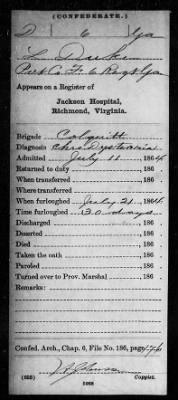 (CONFEDERATE.)
D 6 Ga
L. Duke
Pvt Co. F, 6 Regt Ga
Appears on a Register of
Jackson Hospital,
Richmond, Virginia.
Brigade Colquitt
Diagnosis Chro Dysenteria
Admitted July 11, 1864
Returned to duty , 186
When transferred , 186
Where transferred
When furloughed July 21, 1864
Time furloughed 30 days, 186
Admitted
Deserted , 186
Died , 186
Took the oath , 186
Paroled , 186
Turned over to Prov. Marshal , 186
Remarks:
Confed. Arch., Chap. 6, File No. 186, page
Copyist.